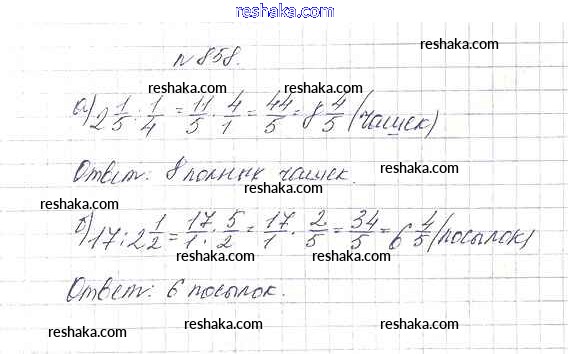 reshaka.com
reshaka.com
№ 858.
reshaka.com reshaka.com
а) 2 1/5 : 1/4 = 11/5 · 4/1 = 44/5 = 8 4/5 (чашек)
reshaka.com reshaka.com
Ответ: 8 полных чашек.
reshaka.com
reshaka.com reshaka.com
б) 17 : 2 1/2 = 17/1 : 5/2 = 17/1 · 2/5 = 34/5 = 6 4/5 (посылок)
reshaka.com reshaka.com
Ответ: 6 посылок.
reshaka.com
reshaka.com reshaka.com